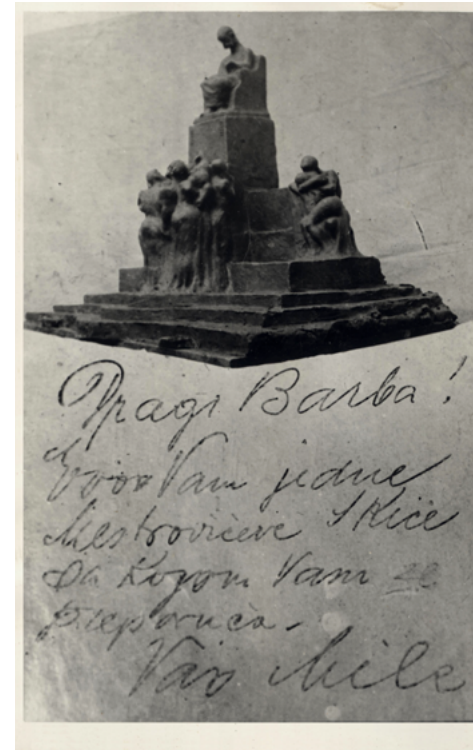 Dragi Barba!
Evo Vam jedne
Meštrovićeve Skice
sa kojom Vam se
preporuča -
Vaš Mile